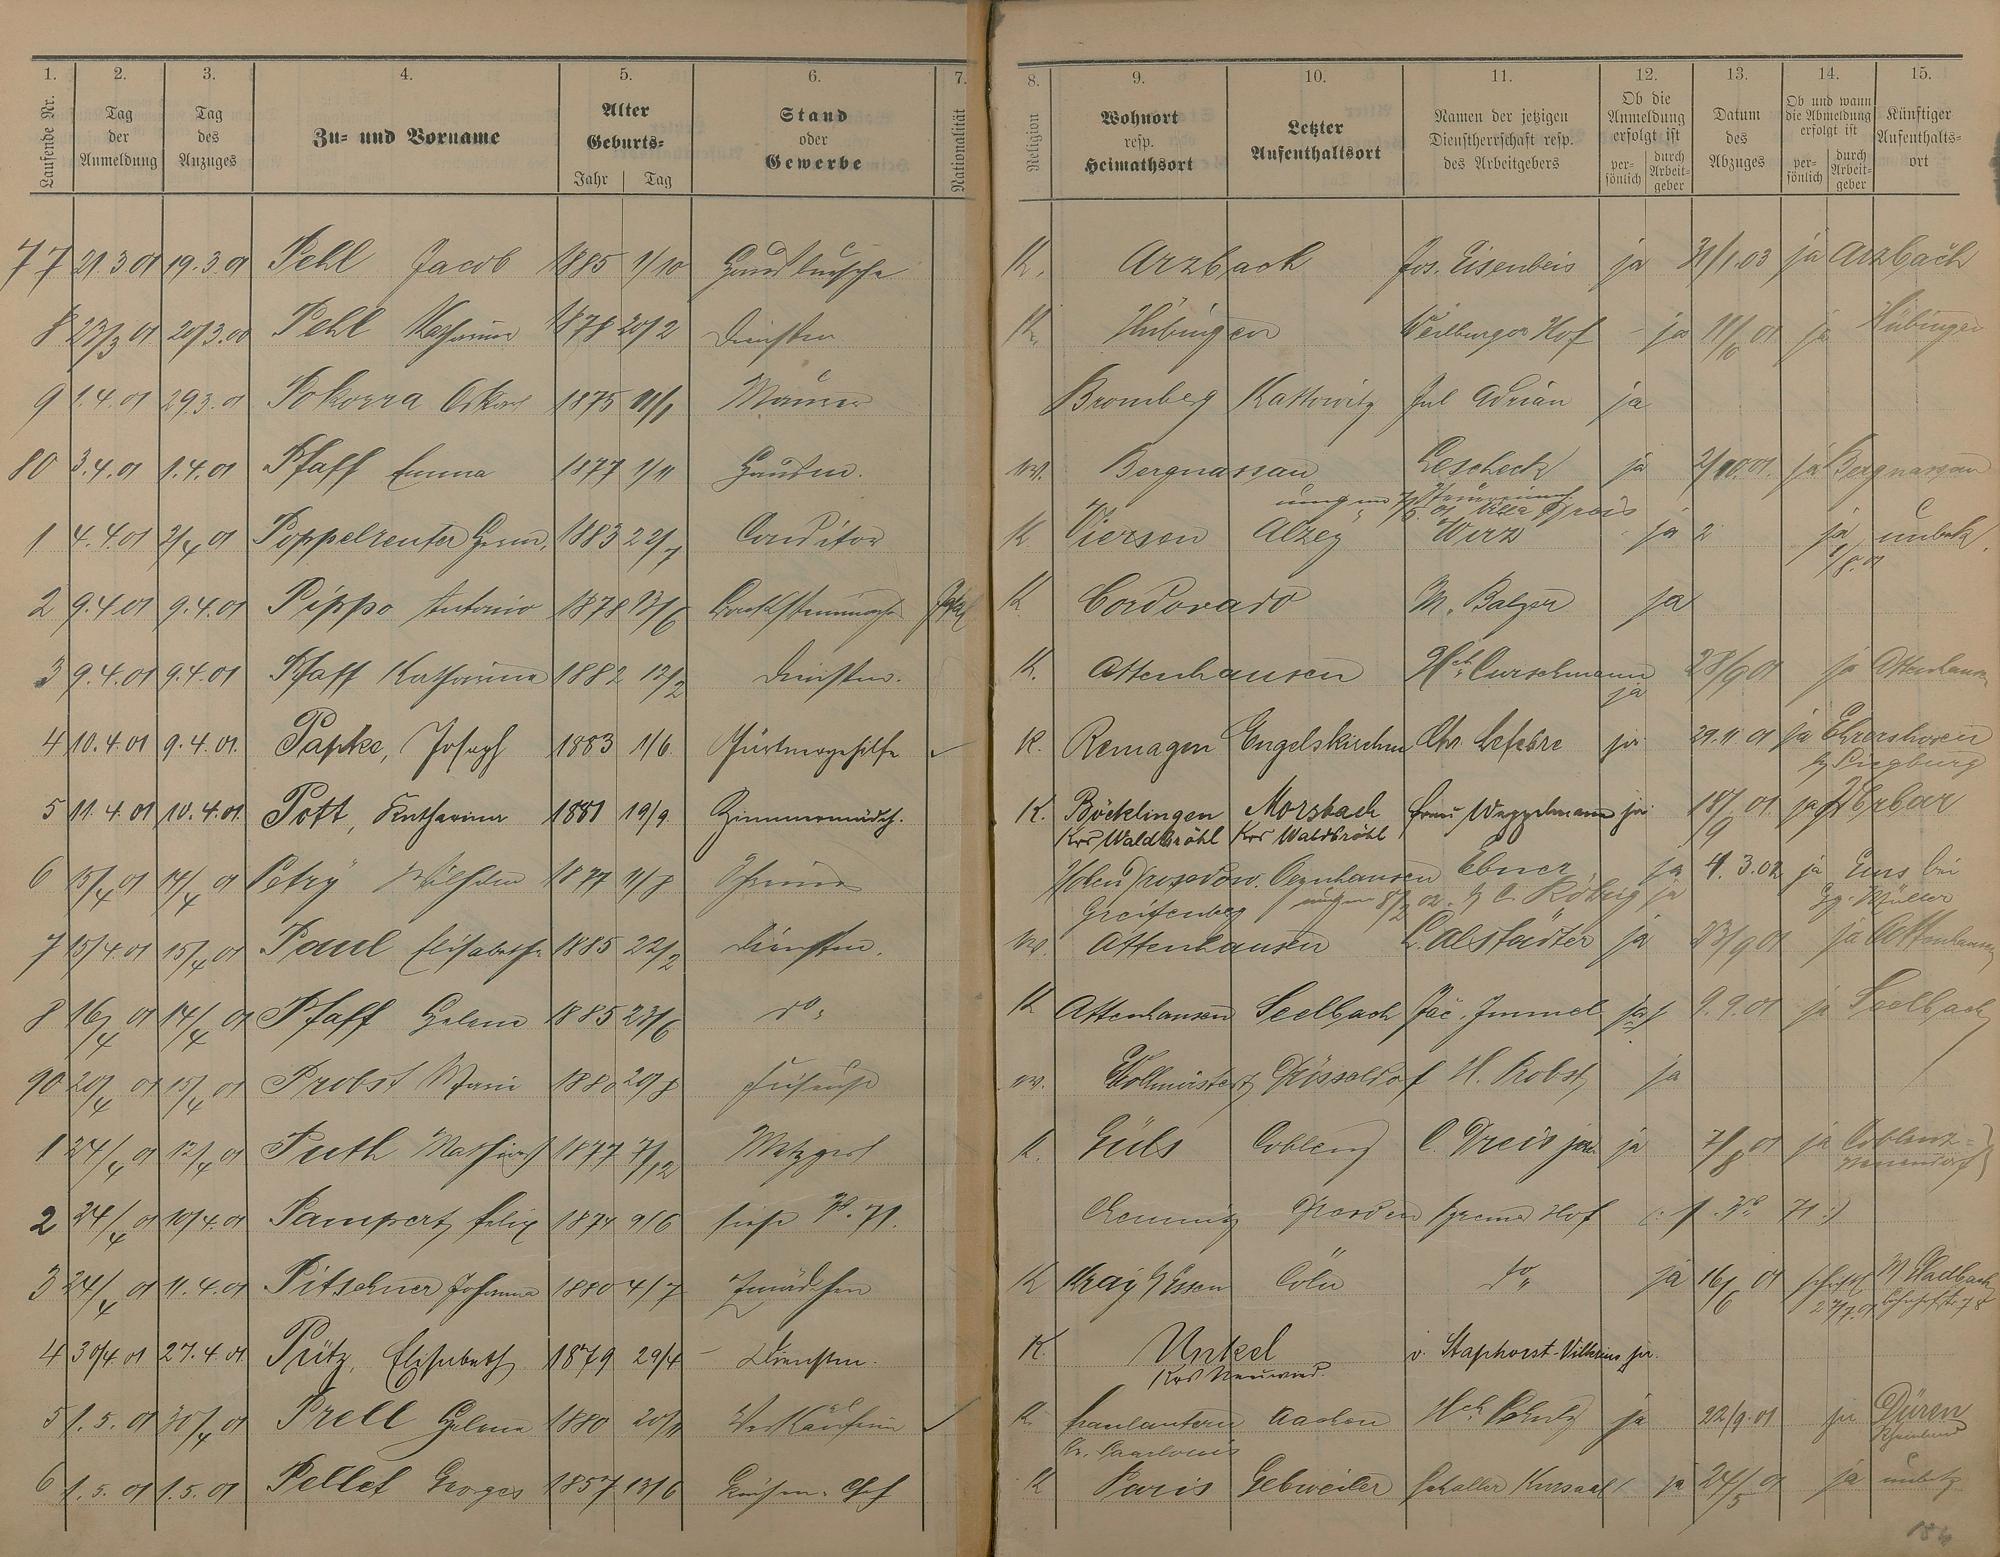 1. 2. 3. 4. 5. 6. 7. 8. 9. 10. 11. 12. 13. 14. 15.
Laufende Nr. | Tag der Anmeldung | Tag des Anzuges | Zu- und Vorname | Alter Geburts- Jahr | Tag | Stand oder Gewerbe | Nationalität | Religion | Wohnort resp. Heimathsort | Letzter Aufenthaltsort | Namen der jetzigen Dienstherrschaft resp. des Arbeitgebers | Ob die Anmeldung erfolgt ist persönlich | durch Arbeitgeber | Datum des Abzuges | Ob und wann die Abmeldung erfolgt ist persönlich | durch Arbeitgeber | Künftiger Aufenthaltsort
77 21.3.01 19.3.01 Pehl Jacob 1885 1/10 Hausbursche K. Arzbach Jos. Eisenbeis ja 31/1.03 ja Arzbach
8 23/3 01 20/3.00 Pehl Katharina 1878 20/2 Dienstm K. Hübingen Weilburger Hof - ja 11/10 01 ja Hübingen
9 1.4.01 29.3.01 Pokorra Oskar 1875 11/1 Maurer Bromberg Kattowitz Jul Adrian ja
80 3.4.01 1.4.01 Pfaff Emma 1877 1/11 Hausm. Bergnassau Lescheck ja 2/10.01. ja Bergnassau
1 4.4.01 2/4 01 Poppelreuter Herm. 1883 22/7 Conditor K Viersen Alzey Wirz ja ja unbek.
1/8.01
2 9.4.01 9.4.01 Pippo Antonio 1878 13/6 K Cordovado M. Balzer ja
3 9.4.01 9.4.01 Pfaff Katharina 1882 12/2 Dienstm. K. Attenhausen Hch. Curschmann ja 28/9 01 ja Attenhausen
4 10.4.01 9.4.01. Papke, Joseph 1883 1/6 Gärtnergehilfe K. Remagen Engelskirchen Chr. Lefebre ja 29.11 01 ja
Siegburg
5 11.4.01 10.4.01. Pott, Katharina 1881 19/9 Zimmermädch. K. Böcklingen Morsbach Frau ja 18/9 01. ja Urbar
Krs Waldbröhl Krs Waldbröhl
6 15/4 01 14/4 01 Petry Wilhelm 1877 11/8 Ebner ja 4.3.02 ja Ems bei
Greifenberg C. Röhrig ja Müller
7 15/4.01 15/4 01 Paul Elisabethe 1885 22/2 Dienstm. Attenhausen L. Alstädter ja 23/9 01 ja Attenhausen
8 16/4 01 14/4 01 Pfaff Helene 1885 23/6 do K Attenhausen Seelbach Jac. Immel ja 9.9.01 ja Seelbach
90 20/4 01 15/4 01 Probst Marie 1880 20/8 Friseuse Düsseldorf H. Probst ja
1 24/4 01 12/4 01 Puth Mathias 1877 7/12 Metzger K. Güls Coblenz C. Dreis jun. ja 7/8 01 ja Coblenz-
Neuendorf
2 24/4 01 10/4.01 Pampert Felix 1874 9/6 siehe No. 71. Chemnitz Dresden Hof 71
3 24/4 01 11.4.01 Pitschner Johanna 1880 4/7 Zmädchen K Kray b/Essen Cöln do ja 16/6 01 M Gladbach
27/7.01
4 30/4 01 27.4.01. Pütz, Elisabeth 1879 29/4 Dienstm. K. Unkel v. Staphorst-Vilkems ja.
Krs Neuwied.
5 1.5.01 30/4 01 Prell Helene 1880 20/11 Verkäuferin K. Fraulautern Aachen Hch Schulz ja 22/9.01 ja Düren
Kr. Saarlouis Rheinland
6 1.5.01 1.5.01 Pellet Georges 1857 13/6 Küchen-Chef K Paris Gebweiler Schaller Kursaal ja 24/5 01 ja unbek